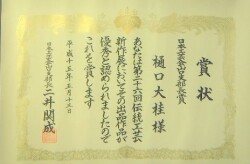 賞状
日本工芸会山口支部長賞
樋口大桂様
あなたは第二十六回伝統工芸
新作展においてその出品作品が
優秀と認められましたので
これを賞します
平成十五年五月十三日
日本工芸会山口支部長
二井関成